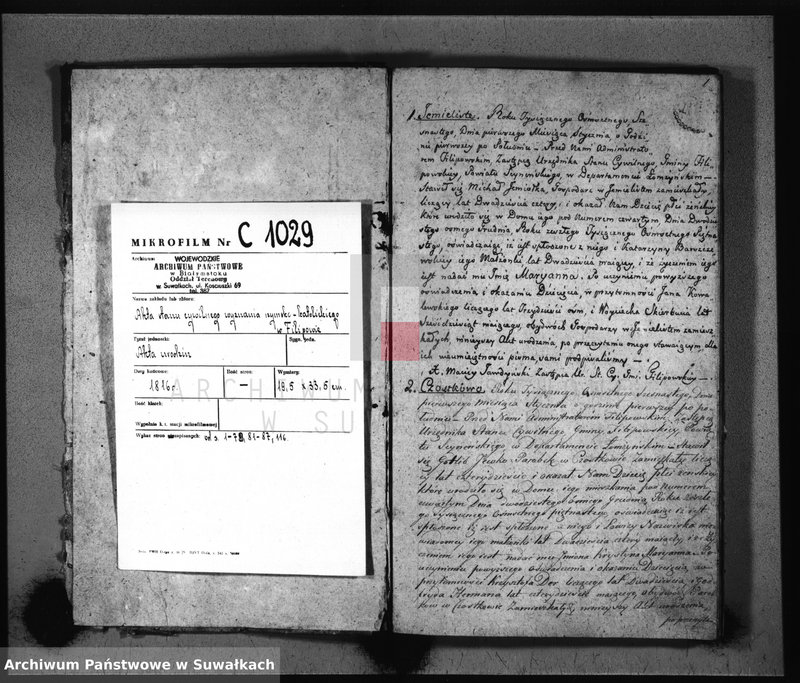 MIKROFILM Nr C 1029
Archiwum:
WOJEWÓDZKIE
ARCHIWUM PAŃSTWOWE
w Białymstoku
Oddział Terenowy
w Suwałkach, ul. Kościuszki 69
tel. 367
Nazwa zakładu lub zbioru:
Akta stanu cywilnego wyznania rzymsko-katolickiego
w Filipowie
Tytuł jednostki:
Sygn. jedn.
Akta urodzin
Daty końcowe:
Ilość stron:
Wymiary:
1816 r
—
19,5 x 33,5 cm.
Ilość klatek:
Wypełnia k. t. stacji mikrofilmowej
Wykaz stron: od s. 1-79, 81-87, 116.
1
1. Jemieliste. Roku Tysiącznego Osmsetnego, Sze
snastego, Dnia pierwszego Miesiąca Stycznia, o Godzi
nie pierwszey po Południu — Przed Nami Administrato
rem Filipowskim, Zastępcą Urzędnika Stanu Cywilnego, Gminy Fili
powskiey, Powiatu Seyneńskiego, w Departamencie Łomżyńskim —
Stawił się Michał Jemiołka, Gospodarz w Jemielistem zamieszkały,
liczący lat Dwadzieścia cztery, i okazał Nam Dziecię płci żeńskiey
które urodziło się w Domu iego pod Numerem czwartym Dnia Dwudzie
stego osmego Grudnia, Roku zeszłego Tysiącznego Osmsetnego Piętna
stego, oświadczaiąc, iż iest spłodzone z niego i Katarzyny
iego Małżonki lat Dwadzieścia maiącey, i że życzeniem iego
iest nadać mu Imię Maryanna. Po uczynieniu powyższego
oświadczenia i okazaniu Dziecięcia, w przytomności Jana Kowa
lewskiego liczącego lat Trzydzieści osm, i Woyciecha Skurowia lat
Sześćdziesiąt maiącego, obydwóch Gospodarzy w Jemielistem zamiesz
kałych, ninieyszy Akt urodzenia, po przeczytaniu onego stawaiącym, dla
ich nieumieiętności pisma, sami podpisaliśmy —
X. Maciey Zastępca Ur. St. Cy. Gmi. Filipowskiey —
2. Czostkowo. Roku Tysiącznego Osmsetnego Szesnastego, Dnia
pierwszego miesiąca Stycznia o godzinie pierwszey po po
łudniu — Przed Nami Administratorem Filipowskim, Zastępcą
Urzędnika Stanu Cywilnego Gminy Filipowskiey, Powia
tu Seyneńskiego w Departamencie Łomżyńskim — Stawił
się Gotlib Parobek w Czostkowie zamieszkały, liczą
cy lat czterydzieście i okazał Nam Dziecię Płci żeńskiey
które urodziło się w Domu iego mieszkania pod Numerem
czwartym Dnia Dwudziestego osmego Grudnia Roku zeszłe
go Tysiącznego Osmsetnego piętnastego, oświadczaiąc iż iest
spłodzone z niego i Luizy Nazwiska nie
wiadomey iego małżonki lat Dwadzieścia cztery maiącey i że ży
czeniem iego iest nadać mu Imiona Krystyna Maryanna — Po
uczynieniu powyższego Oświadczenia i okazaniu Dziecięcia, w
przytomności Krzysztofa Dor liczącego lat Dwadzieścia i God
fryda Hermana lat czterydzieście maiącego, obydwóch Parob
ków w Czostkowie Zamieszkałych, ninieyszy Akt urodzenia,
po przeczyta
ARCHIWUM
W SUWAŁKACH
Archiwum Państwowe w Suwałkach